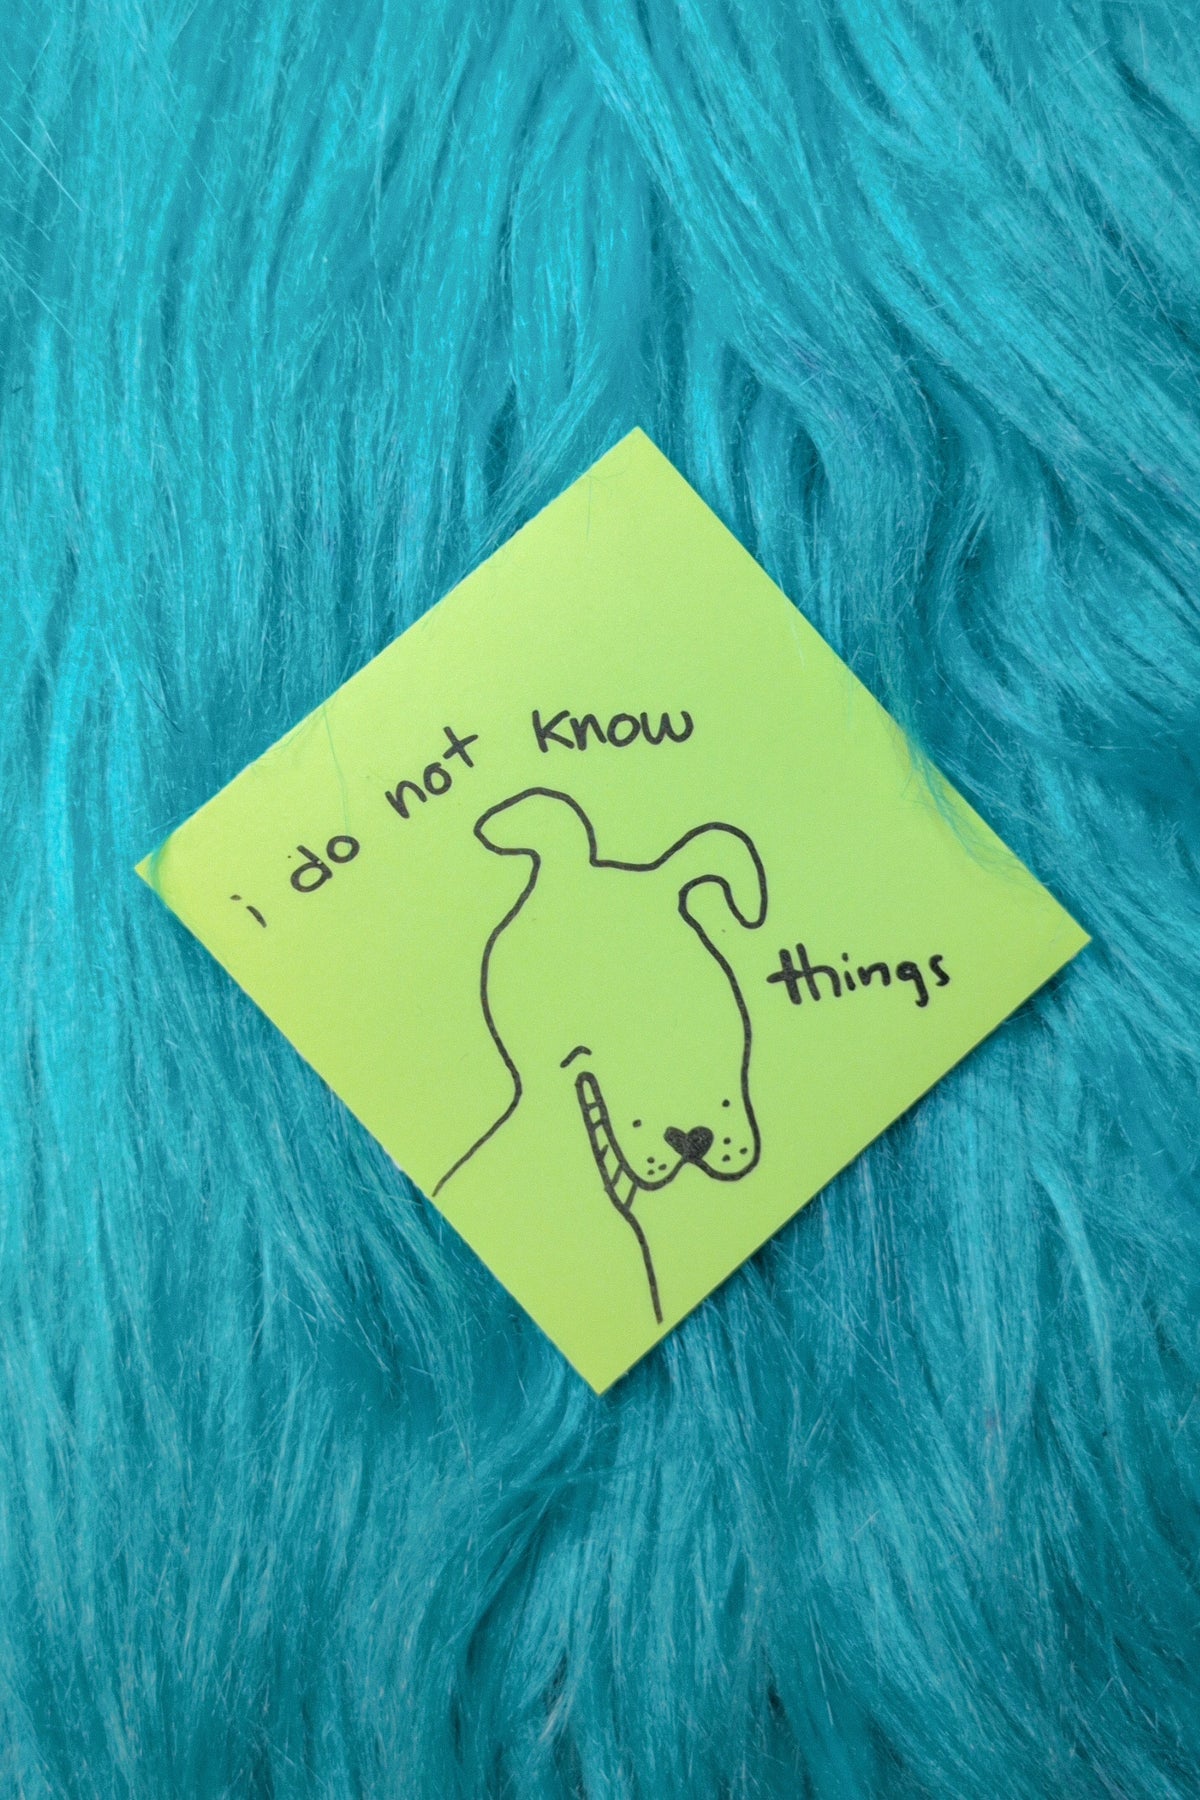 i do not know
things